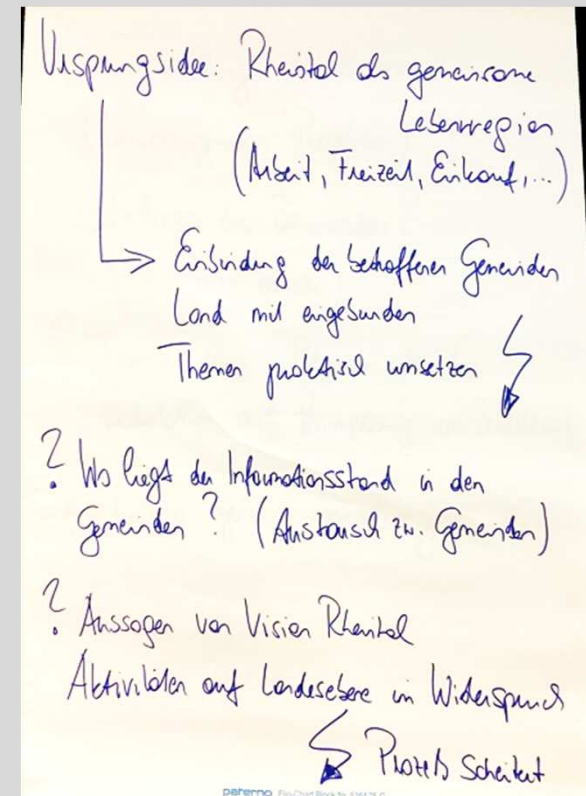 Ursprungsidee: Rheintal als gemeinsame
Lebensregion
(Arbeit, Freizeit, Einkauf,...)
Einbindung der betroffenen Gemeinden
Land mit eingebunden
Themen praktisch umsetzen
? Wo liegt der Informationsstand in den
Gemeinden? (Austausch zw. Gemeinden)
? Aussagen von Vision Rheintal
Aktivitäten auf Landesebene im Widerspruch
Prozeß scheitert
paterno Flip-Chart Block Nr.